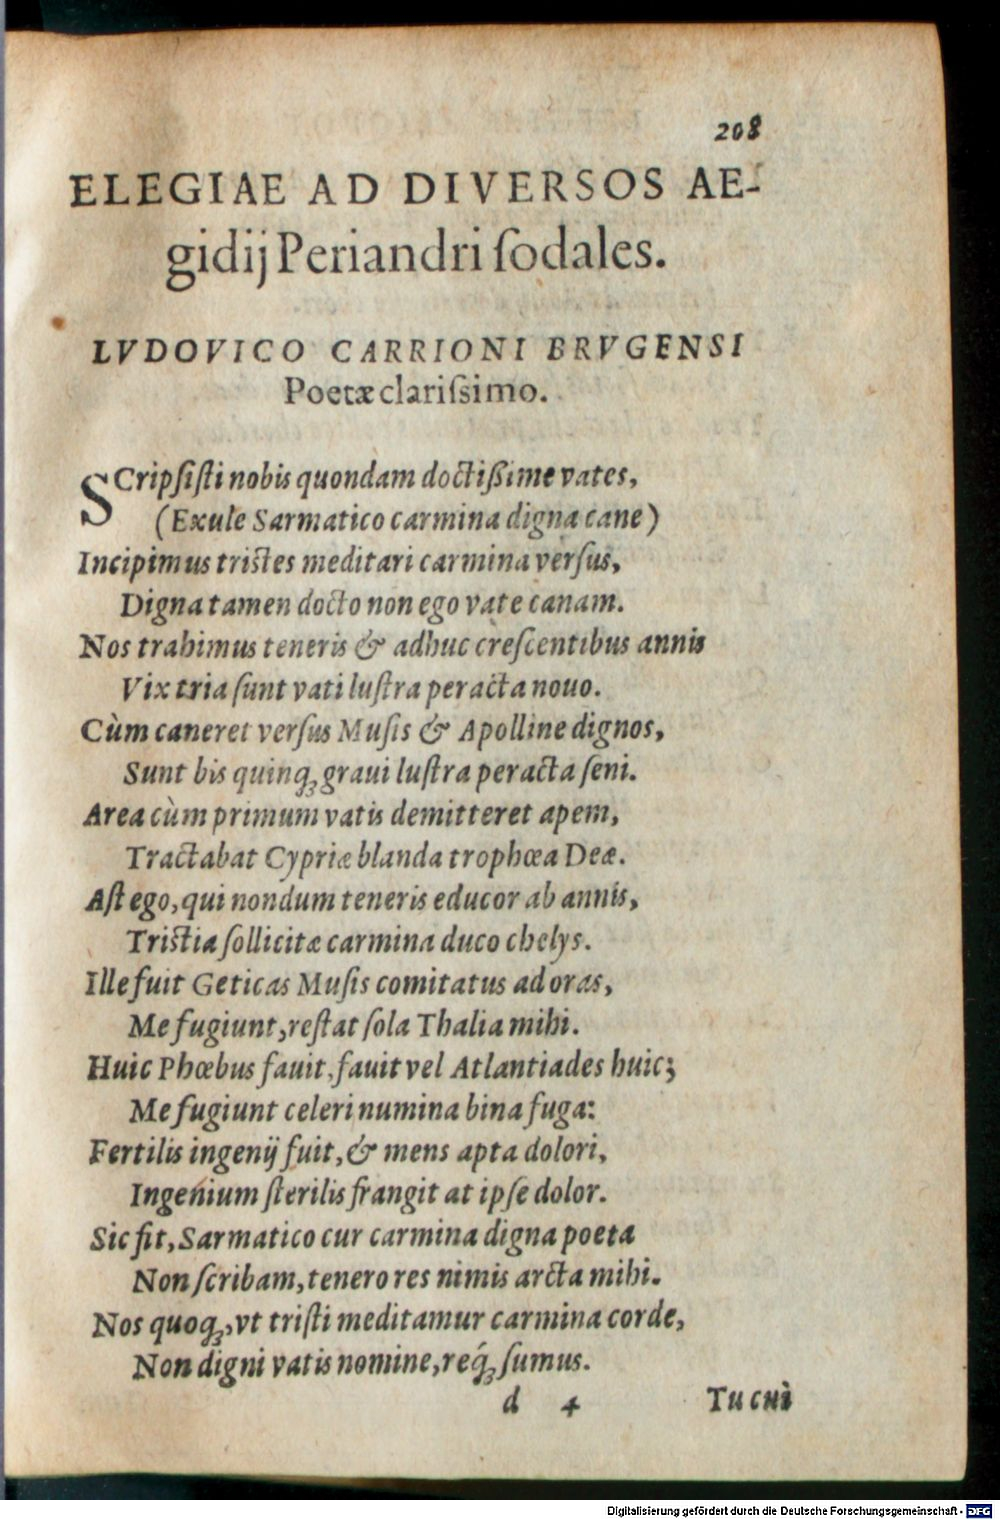 208
ELEGIAE AD DIVERSOS AE-
gidij Periandri ſodales.
LVDOVICO CARRIONI BRVGENSI
Poetæ clariſsimo.
SCripſiſti nobis quondam doctißime vates,
(Exule Sarmatico carmina digna cane)
Incipimus tristes meditari carmina verſus,
Digna tamen docto non ego vate canam.
Nos trahimus teneris & adhuc creſcentibus annis
Vix tria ſunt vati luſtra peracta nouo.
Cùm caneret verſus Muſis & Apolline dignos,
Sunt bis quinq; graui luſtra peracta ſeni.
Area cùm primum vatis demitteret apem,
Tractabat Cypriæ blanda trophœa Deæ.
Aſt ego, qui nondum teneris educor ab annis,
Tristia ſollicitæ carmina duco chelys.
Ille fuit Geticas Muſis comitatus ad oras,
Me fugiunt, reſtat ſola Thalia mihi.
Huic Phœbus fauit, fauit vel Atlantiades huic;
Me fugiunt celeri numina bina fuga:
Fertilis ingenij fuit, & mens apta dolori,
Ingenium ſterilis frangit at ipſe dolor.
Sic fit, Sarmatico cur carmina digna poeta
Non ſcribam, tenero res nimis arcta mihi.
Nos quoq;, vt triſti meditamur carmina corde,
Non digni vatis nomine, req́; ſumus.
d 4 Tu cui
Digitalisierung gefördert durch die Deutsche Forschungsgemeinschaft - DFG